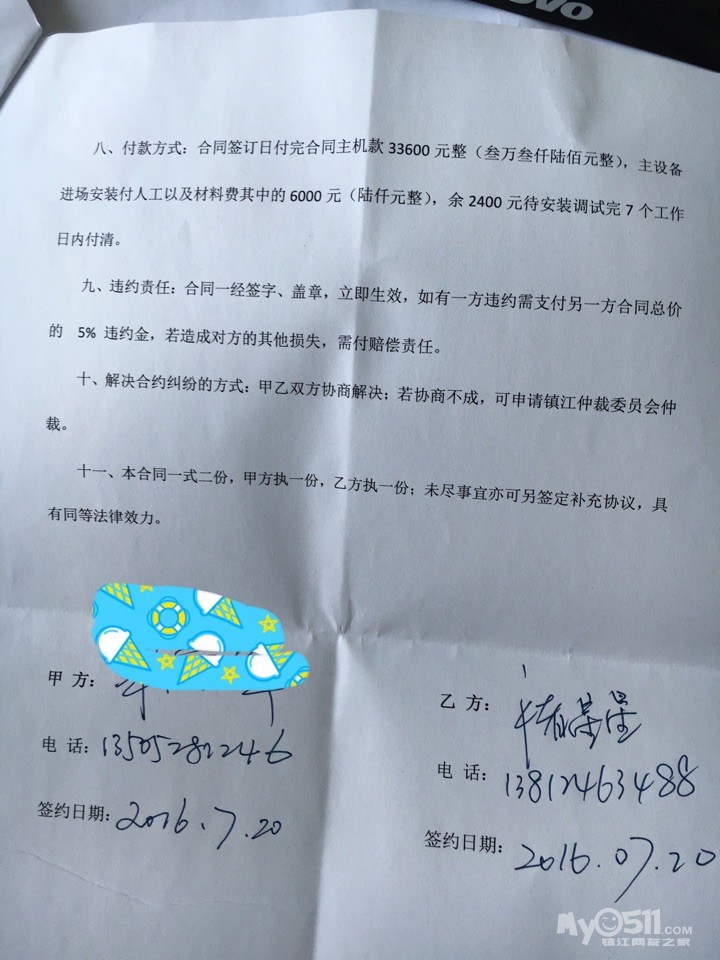 八、付款方式：合同签订日付完合同主机款 33600 元整（叁万叁仟陆佰元整），主设备
进场安装付人工以及材料费其中的 6000 元（陆仟元整），余 2400 元待安装调试完 7 个工作
日内付清。
九、违约责任：合同一经签字、盖章，立即生效，如有一方违约需支付另一方合同总价
的 5% 违约金，若造成对方的其他损失，需付赔偿责任。
十、解决合约纠纷的方式：甲乙双方协商解决；若协商不成，可申请镇江仲裁委员会仲
裁。
十一、本合同一式二份，甲方执一份，乙方执一份；未尽事宜亦可另签定补充协议，具
有同等法律效力。
甲 方：
乙 方：
电 话：13505281246
电 话：13812463488
签约日期：2016.7.20
签约日期：2016.07.20
MY0511.COM
镇江网友之家